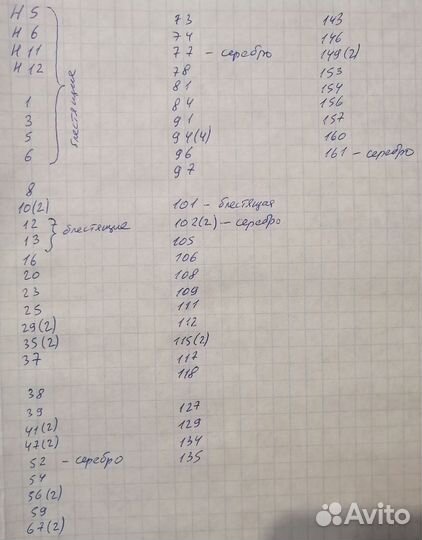 H 5
H 6
H 11
H 12
1
3
5
6
блестящие
8
10(2)
12
13
блестящие
16
20
23
25
29(2)
35(2)
37
38
39
41(2)
47(2)
52 – серебро
54
56(2)
59
67(2)
73
74
77 – серебро
78
81
84
91
94(4)
96
97
101 – блестящая
102(2) – серебро
105
106
108
109
111
112
115(2)
117
118
127
129
134
135
143
146
149(2)
153
154
156
157
160
161 – серебро
Avito